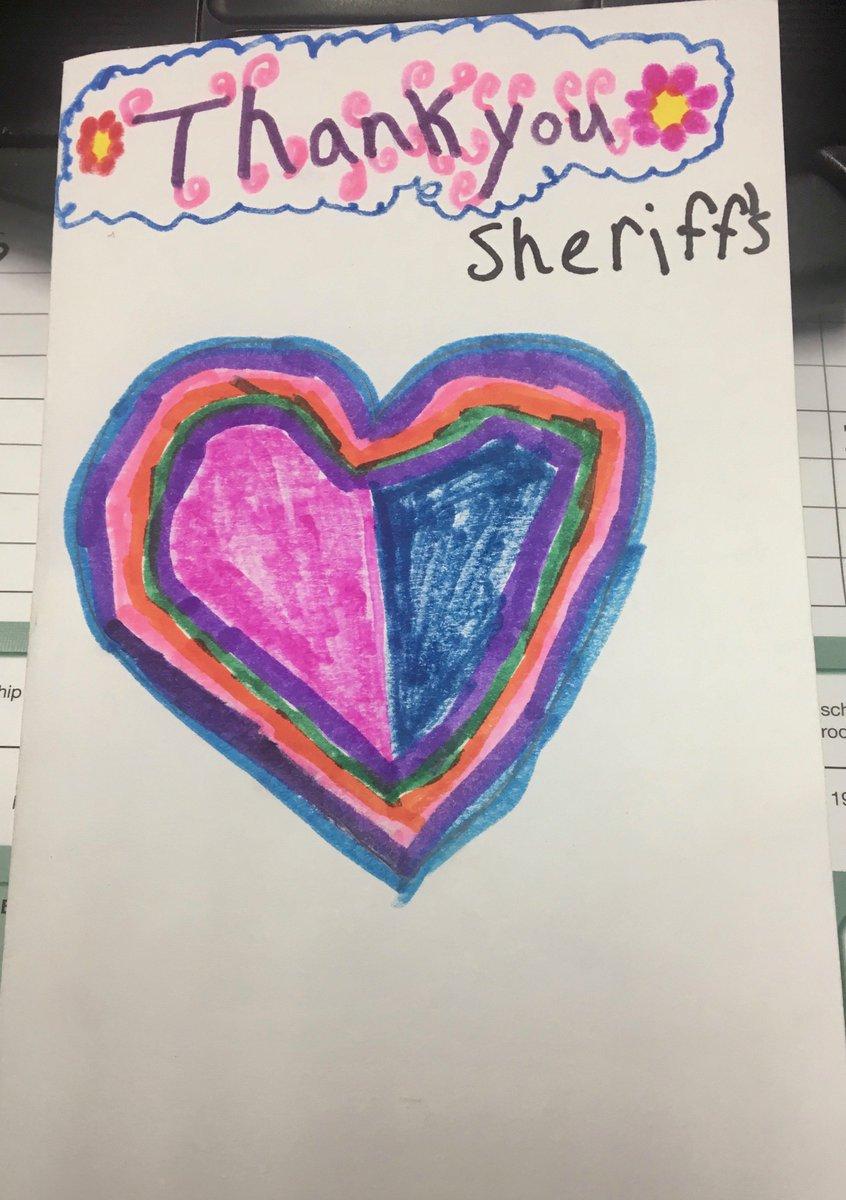 Thank you
Sheriff's
hip
sch
roo
19